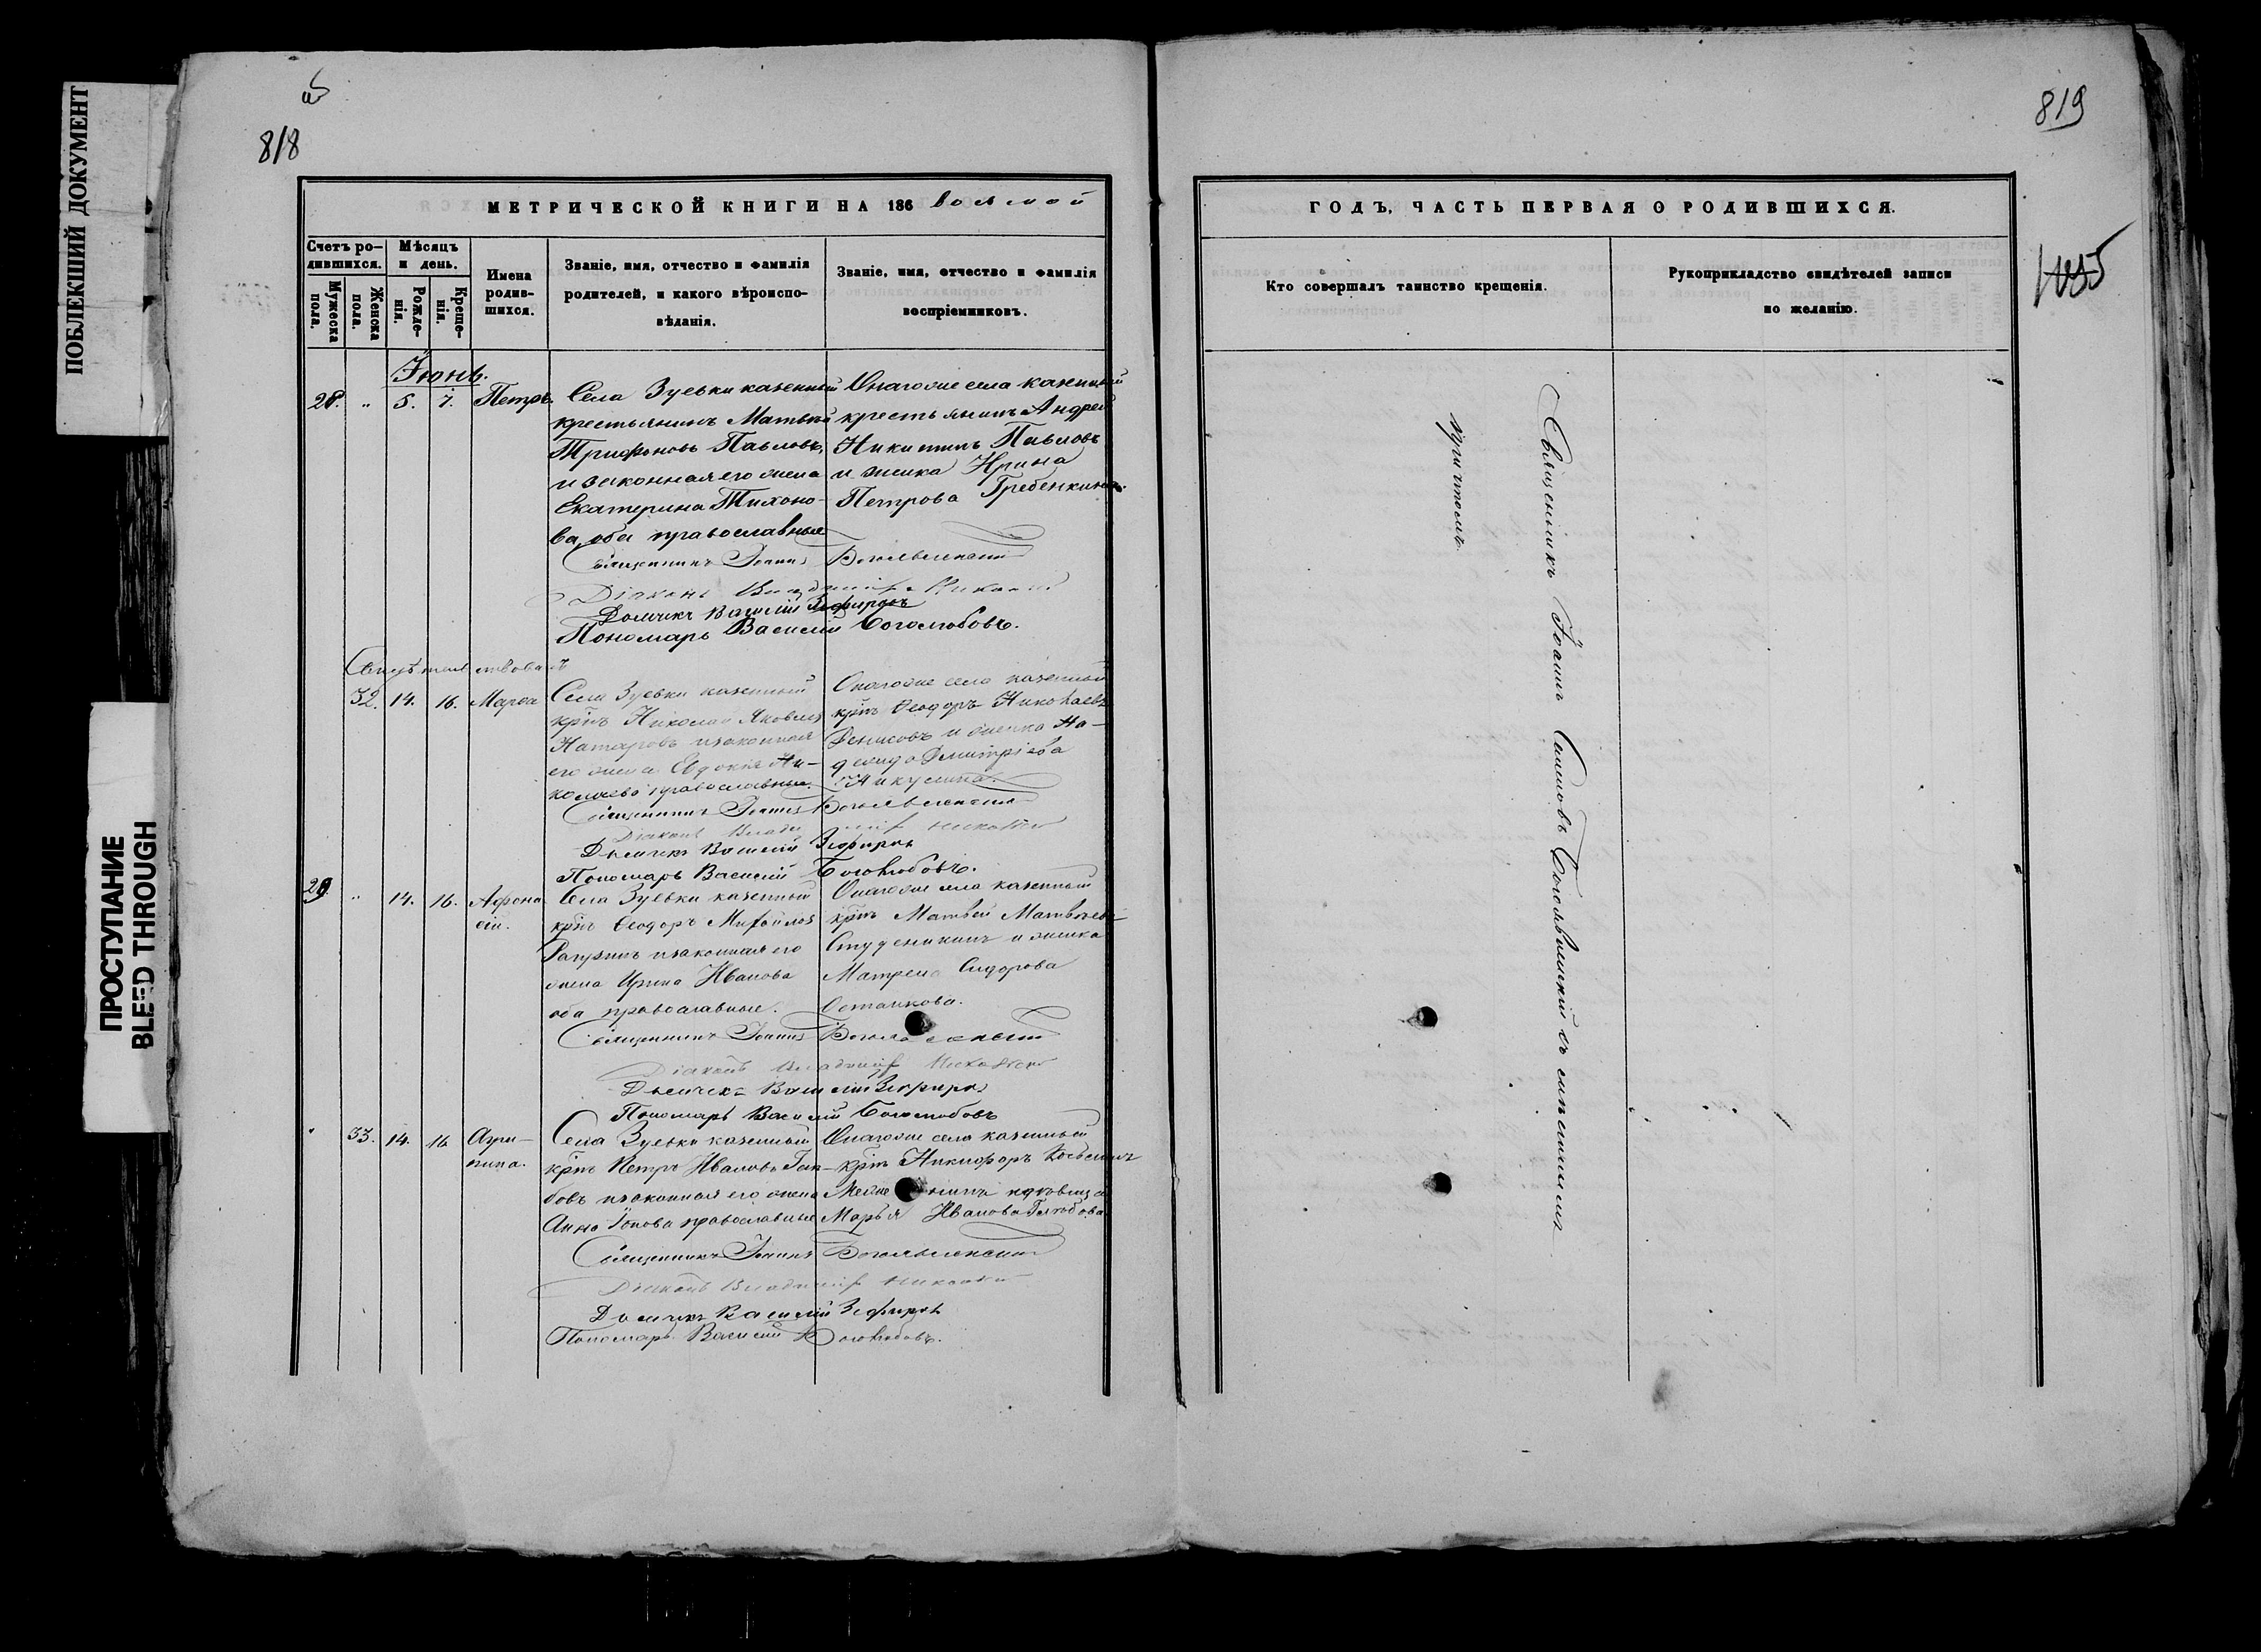 ПОБЛЕКШИЙ ДОКУМЕНТ
ПРОСТУПАНИЕ
BLEED THROUGH
818
МЕТРИЧЕСКОЙ КНИГИ НА 186 восмой
Счетъ родившихся.
Мѣсяцъ и день.
Имена родившихся.
Званіе, имя, отчество и фамилія
родителей, и какого вѣроиспо-
вѣданія.
Званіе, имя, отчество и фамилія
воспріемниковъ.
Мужеска пола.
Женска пола.
Рожде-
нія.
Креще-
нія.
Іюнь.
28. " 5. 7. Петръ.
Села Зуевки казенный
крестьянинъ Матвѣй
Трифоновъ Павловъ,
и законная его жена
Екатерина Тихоно-
ва, оба православные
Онагоже села казенный
крестьянинъ Андрей
Никитинъ Павловъ
и жинка Ирина
Петрова Гребенкина.
Священникъ Іоаннъ Богоявленскій
Діаконъ
Дьячекъ Василій Зефировъ
Пономарь Василій Боголюбовъ.
32. 14. 16. Марѳа
Села Зуевки казенный
крнъ Николай Яковлев
Натаровъ и законная
его жена Евдокія Ни-
колаева православные.
Онагоже села казенный
крнъ Ѳеодоръ Николаевъ
Денисовъ и жинка На-
дежда Дмитріева
Никулина.
Священникъ Іоаннъ Богоявленскій
Діаконъ
Дьячекъ Василій Зефировъ
Пономарь Василій Боголюбовъ.
29. " 14. 16. Афона-
сій.
Села Зуевки казенный
крнъ Ѳеодоръ Михайлов
и законная его
жена Ирина Иванова
оба православные.
Онагоже села казенный
крнъ Матвей Матвѣевъ
Студеникинъ и жинка
Матрена Сидорова
Останкова.
Священникъ Іоаннъ
Діаконъ Владиміръ
Дьячекъ Василій Зефировъ
Пономарь Василій Боголюбовъ
33. 14. 16 Агри-
пина.
Села Зуевки казенный
крнъ Петръ Ивановъ
и законная его жена
Анна православные
Онагоже села казенный
крнъ Никифоръ
Марья Иванова
Священникъ Іоаннъ Богоявленскій
Діаконъ Владиміръ
Дьячекъ Василій Зефировъ
Пономарь Василій Боголюбовъ.
819
ГОДЪ, ЧАСТЬ ПЕРВАЯ О РОДИВШИХСЯ.
Кто совершалъ таинство крещенія.
Рукоприкладство свидѣтелей записи
по желанію.
Священникъ Іоаннъ Симеоновъ Богоявленскій съ
причтомъ.